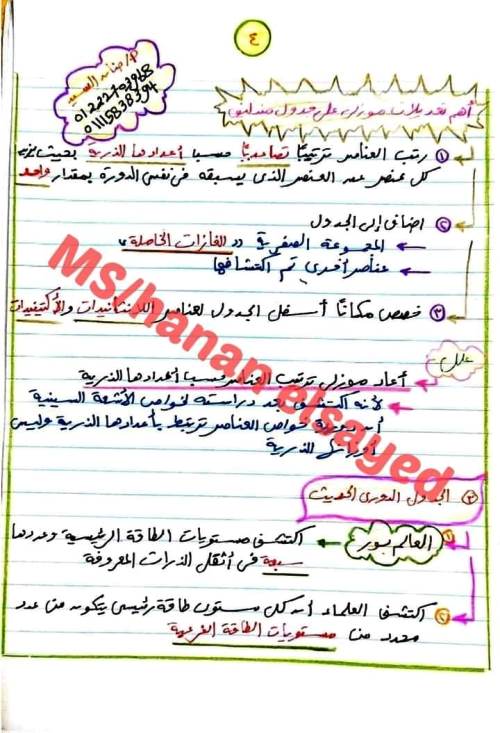 ٤
م/حنان السيد
01222703968
01115838394
أهم تعديلات موزلى على جدول مندليف
① رتب العناصر ترتيبًا تصاعديًا حسب أعدادها الذرية بحيث يزيد
كل عنصر عن العنصر الذى يسبقه فى نفس الدورة بمقدار واحد
② اضاف إلى الجدول
← المجموعة الصفرية "الغازات الخاملة"
← عناصر أخرى تم اكتشافها
③ خصص مكانًا أسفل الجدول لعناصر اللانثانيدات والأكتينيدات
علل
أعاد موزلى ترتيب العناصر حسب أعدادها الذرية
← لأنه اكتشف بعد دراسته لخواص الأشعة السينية
أن دورية خواص العناصر ترتبط بأعدادها الذرية وليس
أوزانها الذرية
③ الجدول الدورى الحديث
① العالم بور ← اكتشف مستويات الطاقة الرئيسية وعددها
سبعة فى أثقل الذرات المعروفة
② اكتشف العلماء أن كل مستوى طاقة رئيسى يتكون من عدد
محدد من مستويات الطاقة الفرعية
MS/hanan elsayed